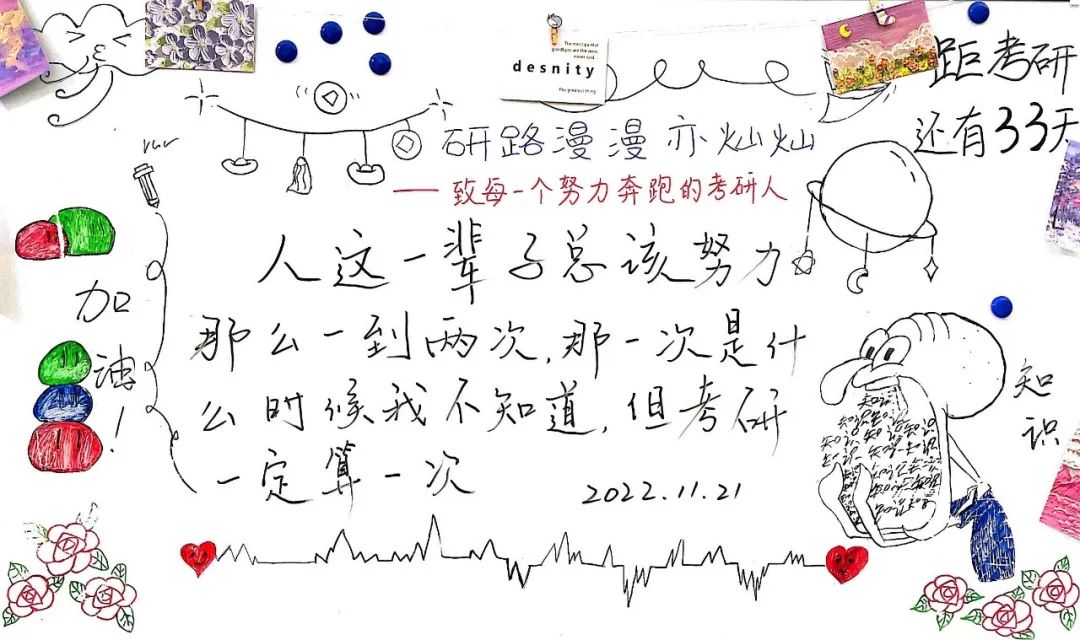 The most painful
goodbyes are the ones
never said.
desnity
The greatest thing
距考研
还有33天
研路漫漫亦灿灿
——致每一个努力奔跑的考研人
人这一辈子总该努力
那么一到两次,那一次是什
么时候我不知道,但考研
一定算一次
2022.11.21
加
油
!
知
识